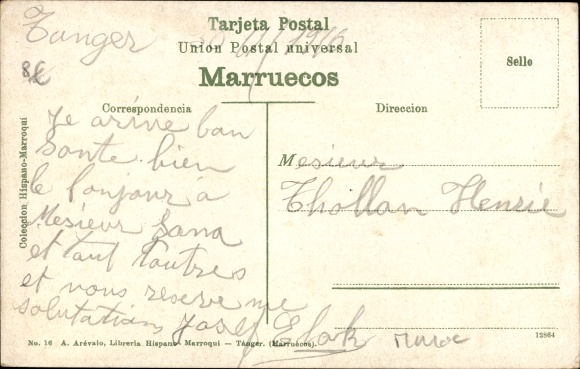 Tanger
Tarjeta Postal
Union Postal universal
Marruecos
Sello
8€
Correspondencia
Direccion
Coleccion Hispano-Marroqui
Je arive ban
sante bien
le bonjour a
Mesieur Sana
et tout toutres
et vous reserve me
solutations Josef
Mesieur
Thollan Henrie
Maroc
No. 16 A. Arévalo, Libreria Hispano-Marroqui — Tánger. (Marruecos).
12864